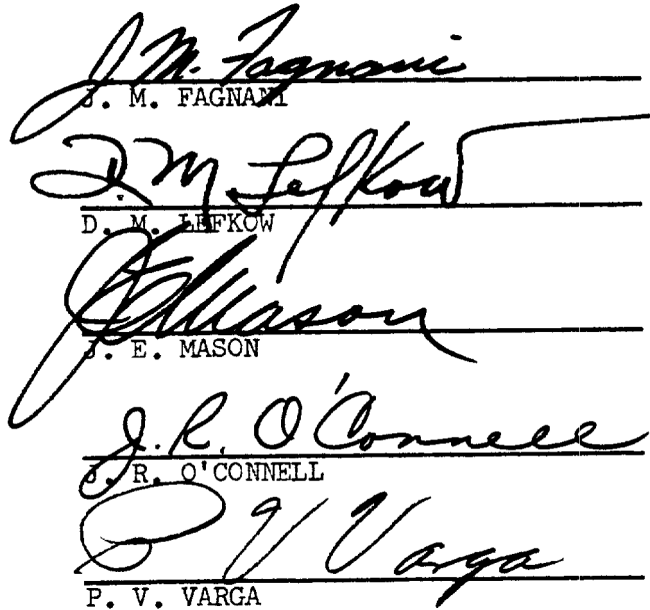 J. M. Fagnani
J. M. FAGNANI
D. M. Lefkow
D. M. LEFKOW
J E Mason
J. E. MASON
J. R. O'Connell
J. R. O'CONNELL
P V Varga
P. V. VARGA